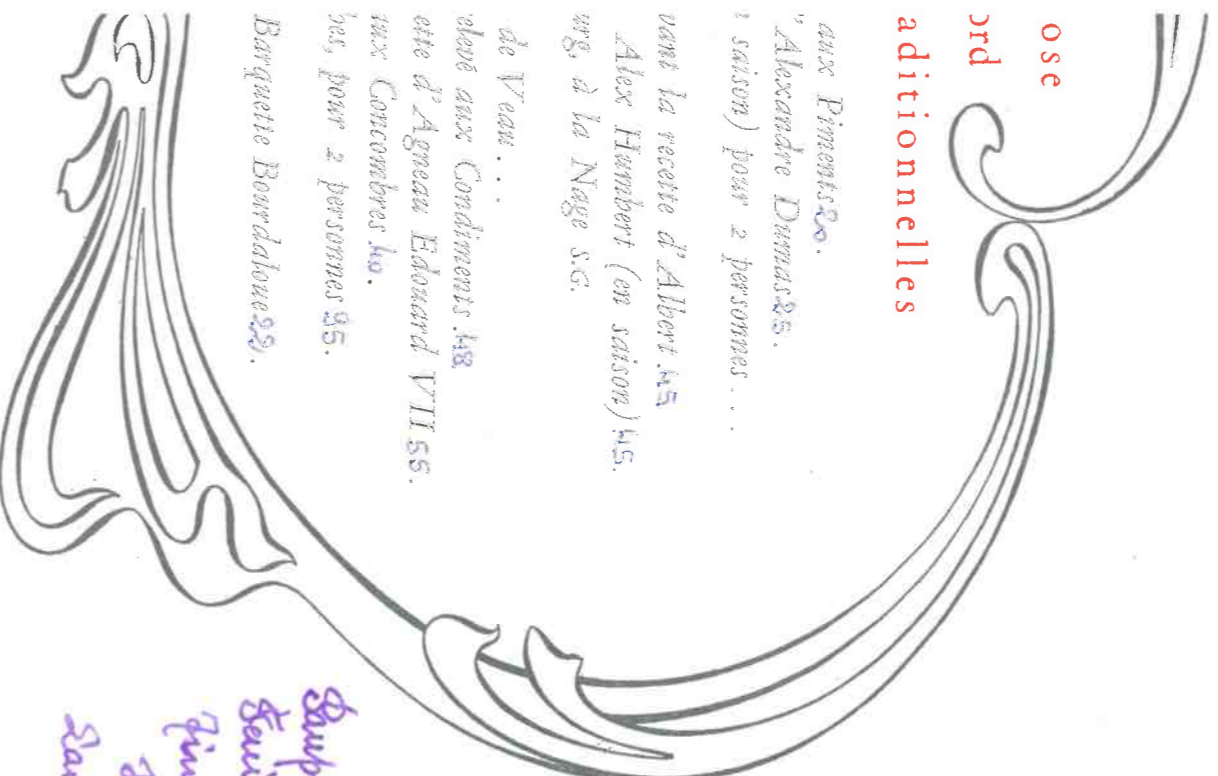 ose
ord
aditionnelles
aux Piments 20.
Alexandre Dumas 25.
saison) pour 2 personnes....
vant la recette d'Albert. 45
Alex Humbert (en saison) 45.
urg, à la Nage s.c.
de Veau....
elevé aux Condiments. 48
ette d'Agneau Edouard VII 55.
aux Concombres. 40.
es, pour 2 personnes 95.
Barquette Bourdaloue 22.